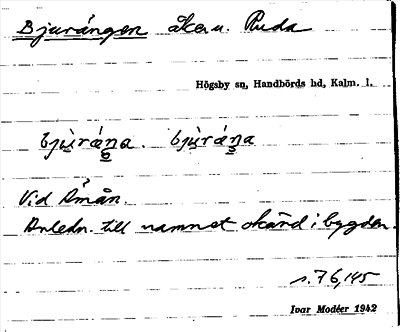 Bjurången åker u. Ruda
Högsby sn, Handbörds hd, Kalm. l.
bjùráŋa . bjùráŋa
Vid Åmån.
Anledn. till namnet okänd i bygden.
s. 76, 145
Ivar Modéer 1942